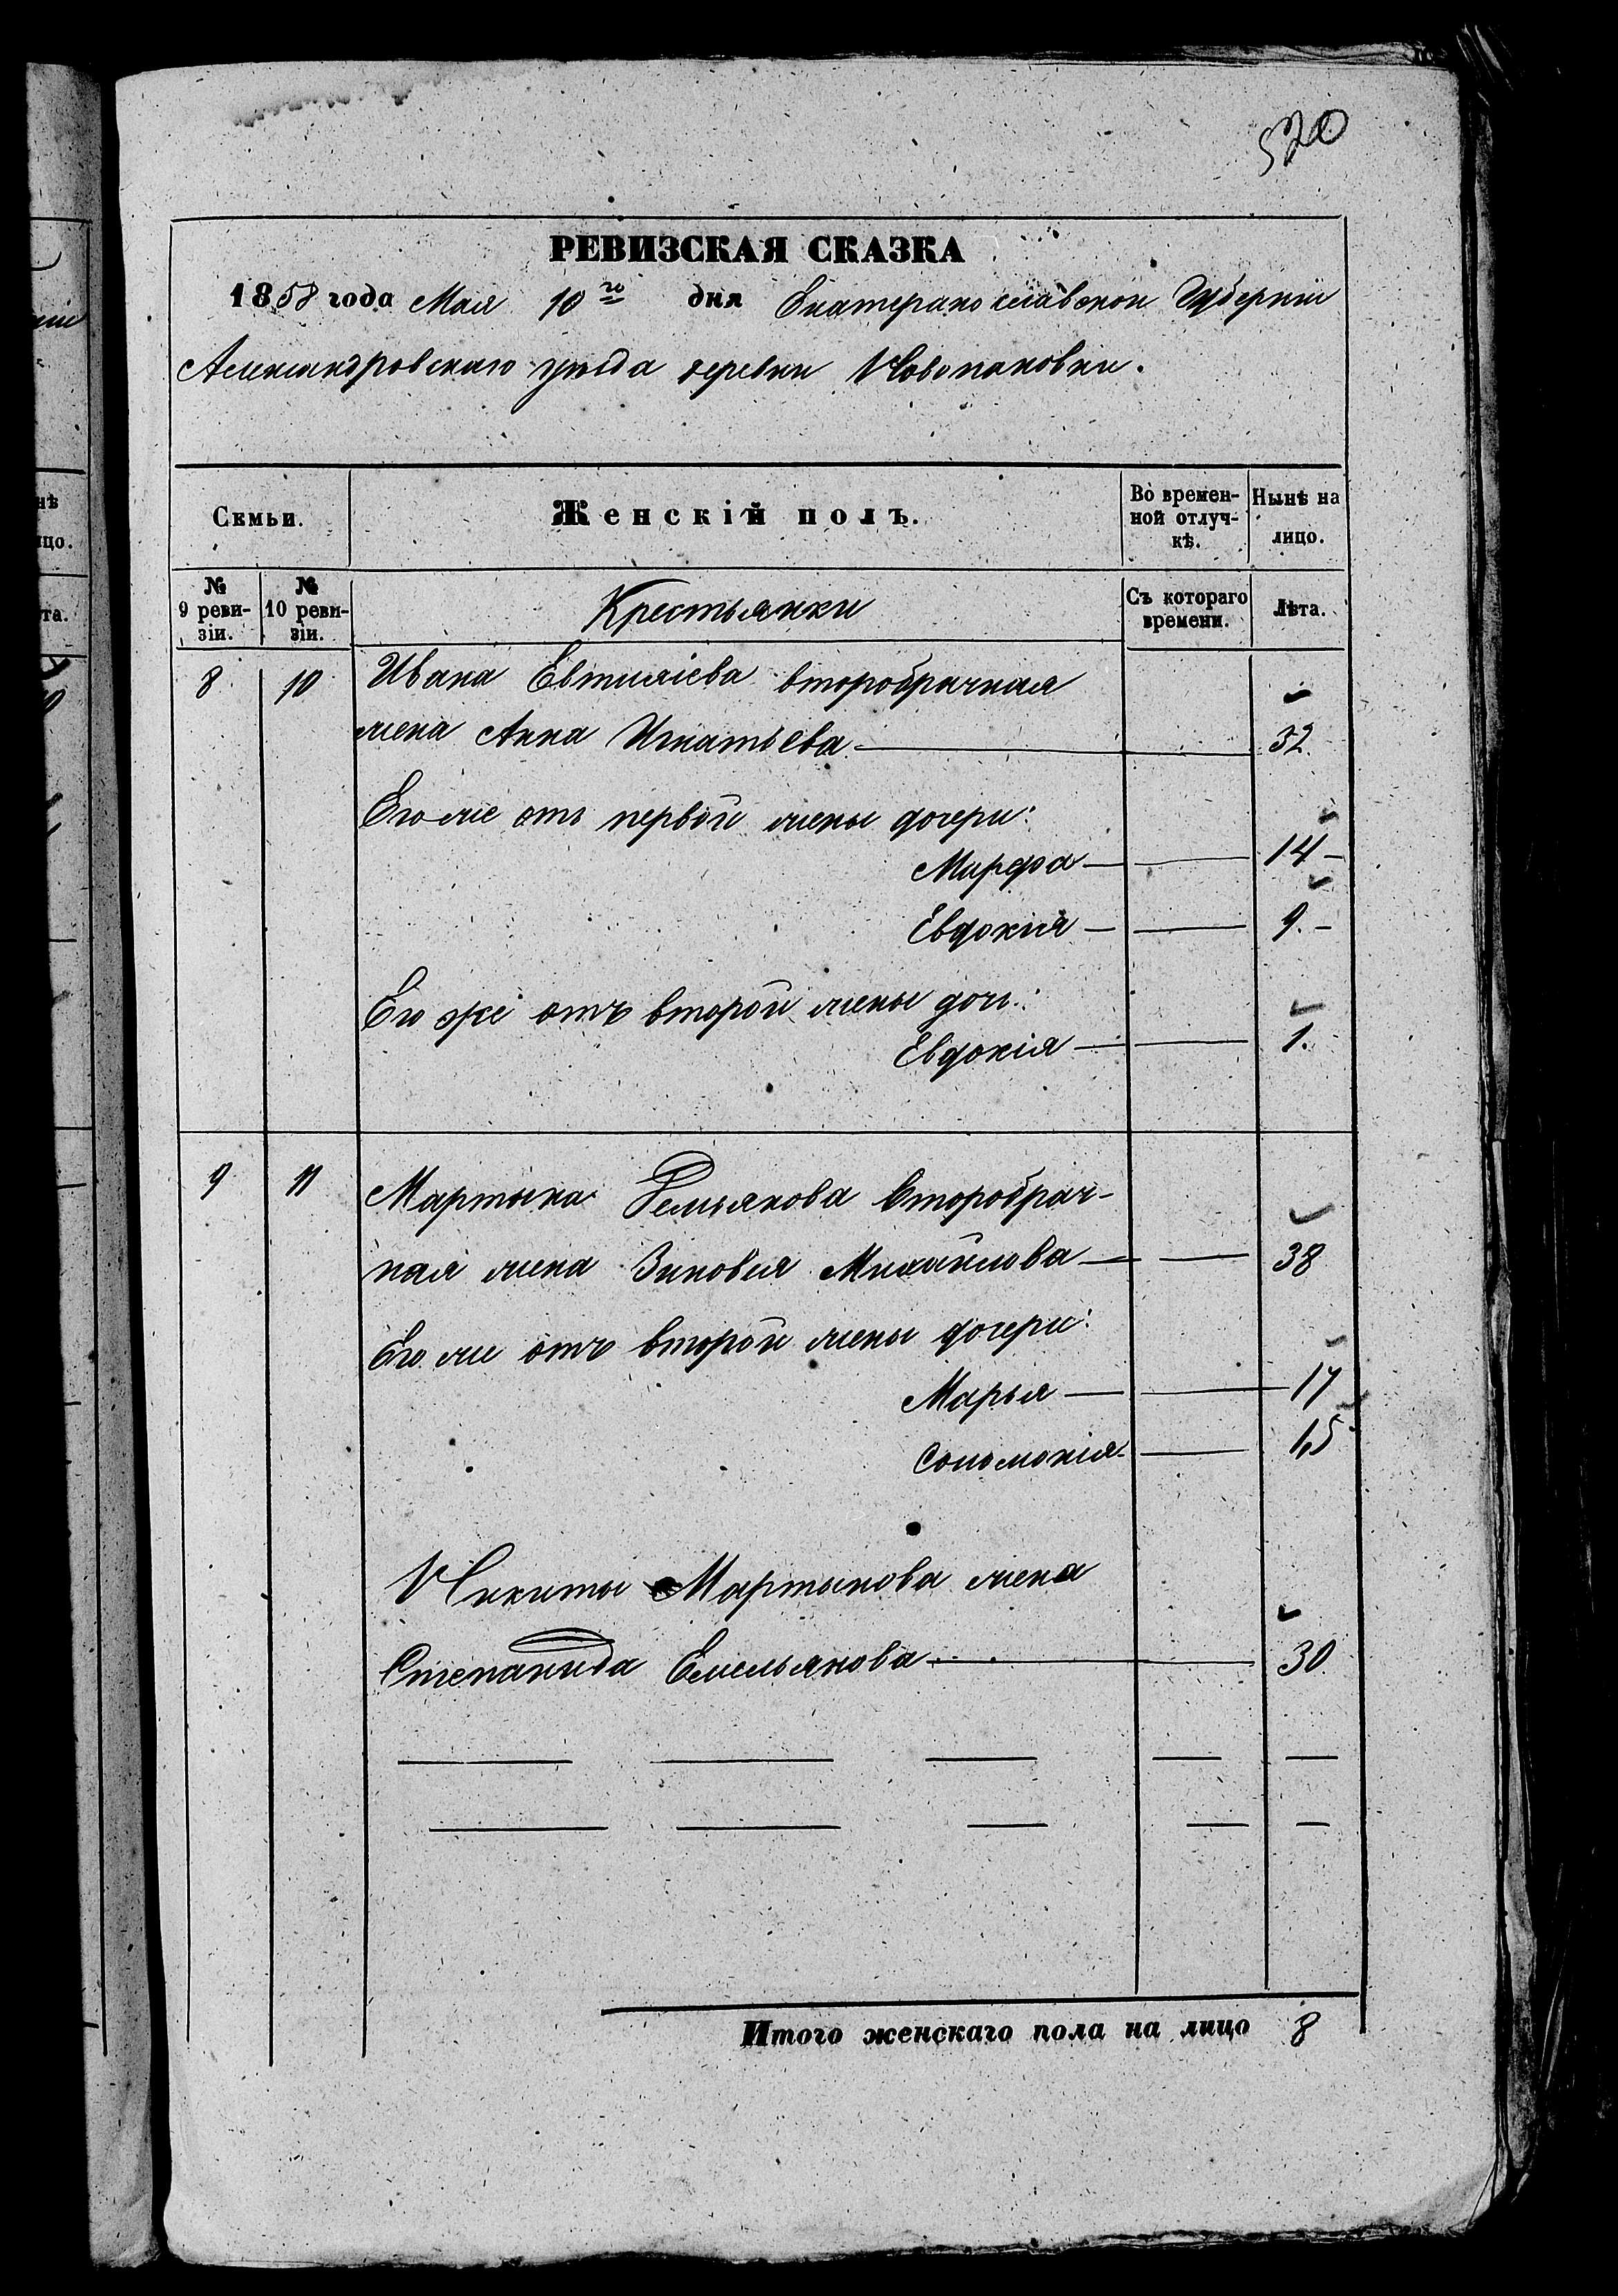 520
РЕВИЗСКАЯ СКАЗКА
1858 года Мая 10го дня Екатеринославской Губернии
Александровскаго уезда деревни Новопановки.
Семьи. Женскій полъ. Во времен-ной отлуч-кѣ. Нынѣ на лицо.
№ 9 реви-зіи. № 10 реви-зіи. Крестьянки Съ котораго времени. Лѣта.
8 10 Ивана второбрачная
жена Анна Игнатьева 32.
Его же отъ первой жены дочери:
Марфа 14
Евдокия 9.
Его же отъ второй жены дочь:
Евдокія 1.
9 11 Мартына Демьянова второбрач-
ная жена Зиновия Михайлова 38
Его же отъ второй жены дочери:
Марья 17
Соломонія 15
Никиты Мартынова жена
Степанида Емельянова 30
Итого женскаго пола на лицо 8